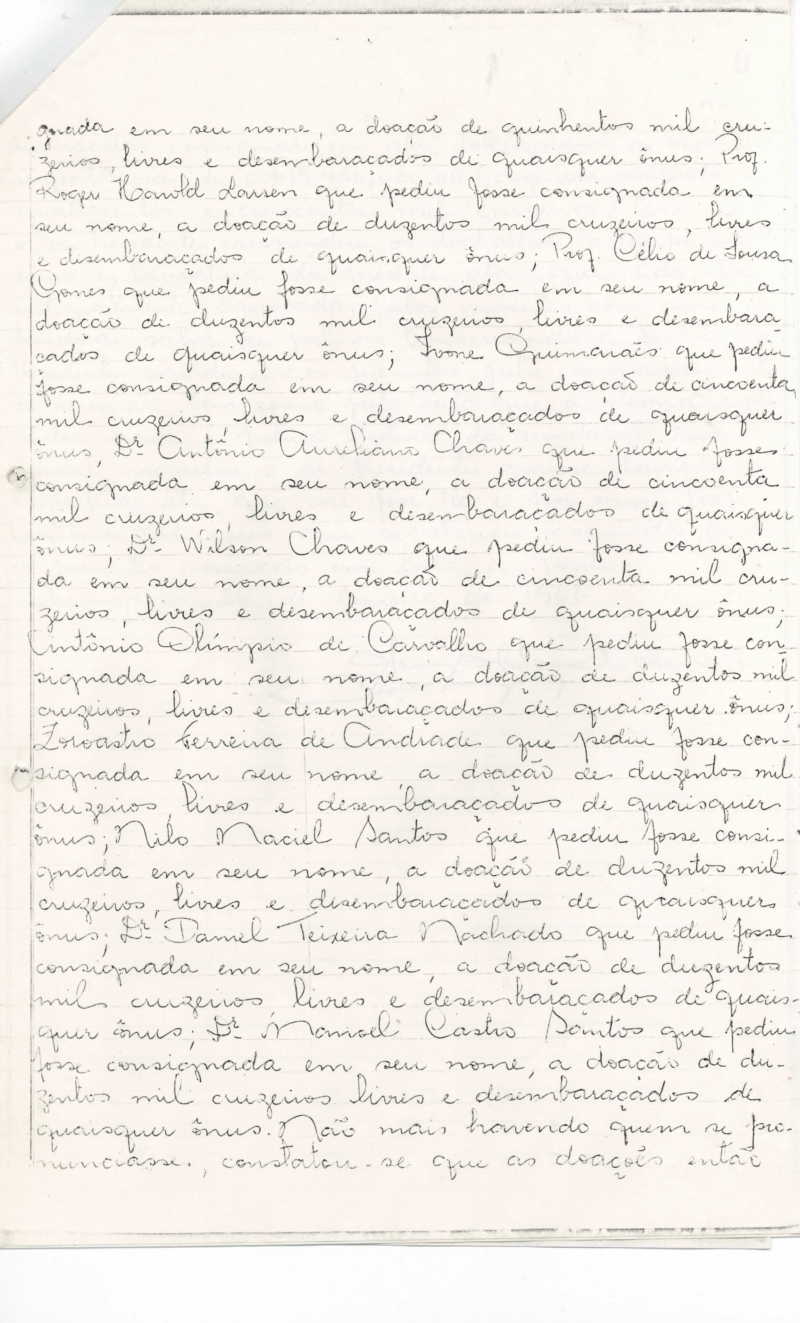 gnada em seu nome, a doação de quinhentos mil cru-
zeiros, livres e desembaraçados de quaisquer ônus; Prof.
Roger Harold Larsen que pediu fosse consignada em
seu nome, a doação de duzentos mil cruzeiros, livres
e desembaraçados de quaisquer ônus; Prof. Célio de Sousa
Gomes que pediu fosse consignada em seu nome, a
doação de duzentos mil cruzeiros, livres e desembara
çados de quaisquer ônus; Ivone Guimarães que pediu
fosse consignada em seu nome, a doação de cincoenta
mil cruzeiros, livres e desembaraçados de quaisquer
ônus, Dr. Antônio Aureliano Chaves que pediu fosse
consignada em seu nome, a doação de cincoenta
mil cruzeiros, livres e desembaraçados de quaisquer
ônus; Dr. Wilson Chaves que pediu fosse consigna-
da em seu nome, a doação de cincoenta mil cru-
zeiros, livres e desembaraçados de quaisquer ônus;
Antônio Olímpio de Carvalho que pediu fosse con-
signada em seu nome, a doação de duzentos mil
cruzeiros, livres e desembaraçados de quaisquer ônus;
Zoroastro Ferreira de Andrade que pediu fosse con-
signada em seu nome, a doação de duzentos mil
cruzeiros, livres e desembaraçados de quaisquer
ônus; Nilo Maciel Santos que pediu fosse consi-
gnada em seu nome, a doação de duzentos mil
cruzeiros, livres e desembaraçados de quaisquer
ônus; Dr. Daniel Teixeira Machado que pediu fosse
consignada em seu nome, a doação de duzentos
mil cruzeiros, livres e desembaraçados de quais-
quer ônus; Dr. Manoel Castro Santos que pediu
fosse consignada em seu nome, a doação de du-
zentos mil cruzeiros livres e desembaraçados de
quaisquer ônus. Não mais havendo quem se pro-
nunciasse, constatou-se que as doações então